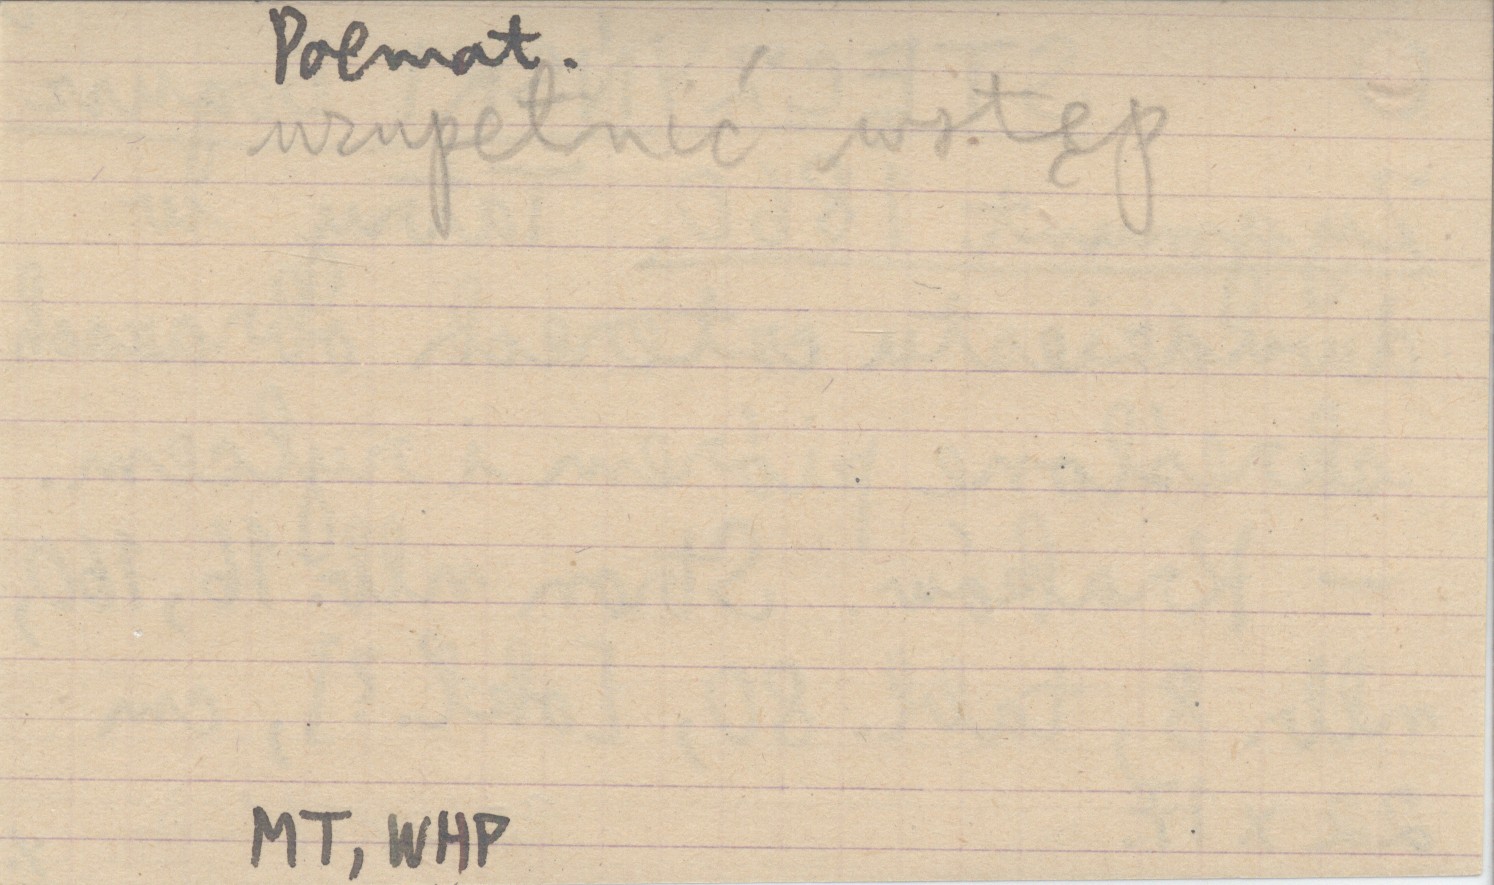 Poemat.
uzupełnić wstęp
MT, WHP